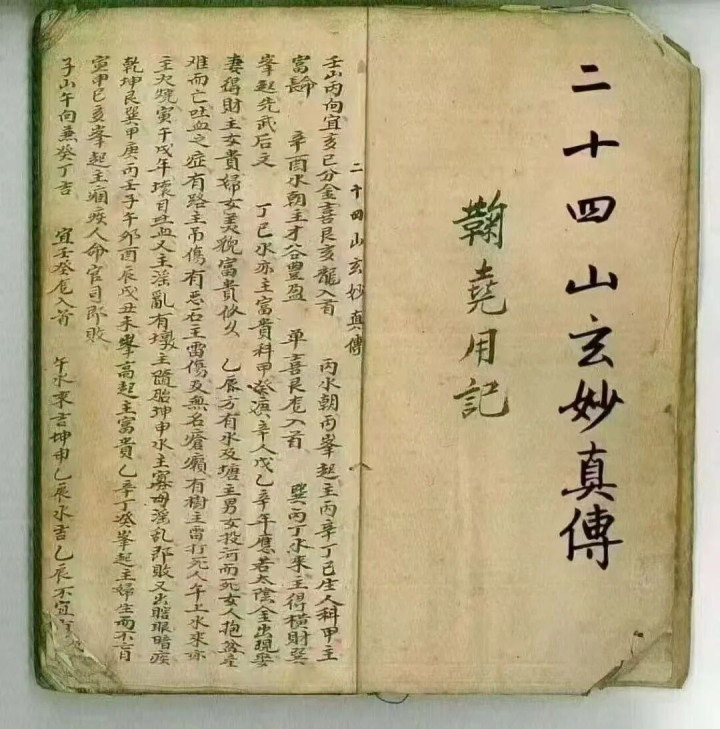 二十四山玄妙真傳
鞠堯用記
二十四山玄妙真傳
壬山丙向宜亥巳分金喜艮亥龍入首 丙水朝丙峯起主丙辛丁巳生人科甲主
富 辛酉水朝主才谷豐盈 单喜艮龙入首 巽丙丁水來主得横財巽
峯起先武后文 丁巳水亦主富貴科甲癸 辛人戊乙辛年應若太陰金出現娶
妻得財主女貴婦女美貌富貴悠久 乙辰方有水及塘主男女投河而死女人抱盆產
难而亡吐血之症有路主吊傷有惡石主雷傷及無名瘡癩有樹主雷打死人午上水來亦
主火燒寅午戌年壞目吐血又主淫亂有墩主隨胎坤申水主寡母淫乱即敗又出瞎眼暗疾
乾坤艮巽甲庚丙壬子午卯酉辰戌丑未峯高起主富貴乙辛丁癸峯起主婦生而不育
寅甲巳亥峯起主痼疾人命官司即敗
子山午向兼癸丁吉 宜壬癸龙入首 午水來吉坤申乙辰水吉乙辰不宜